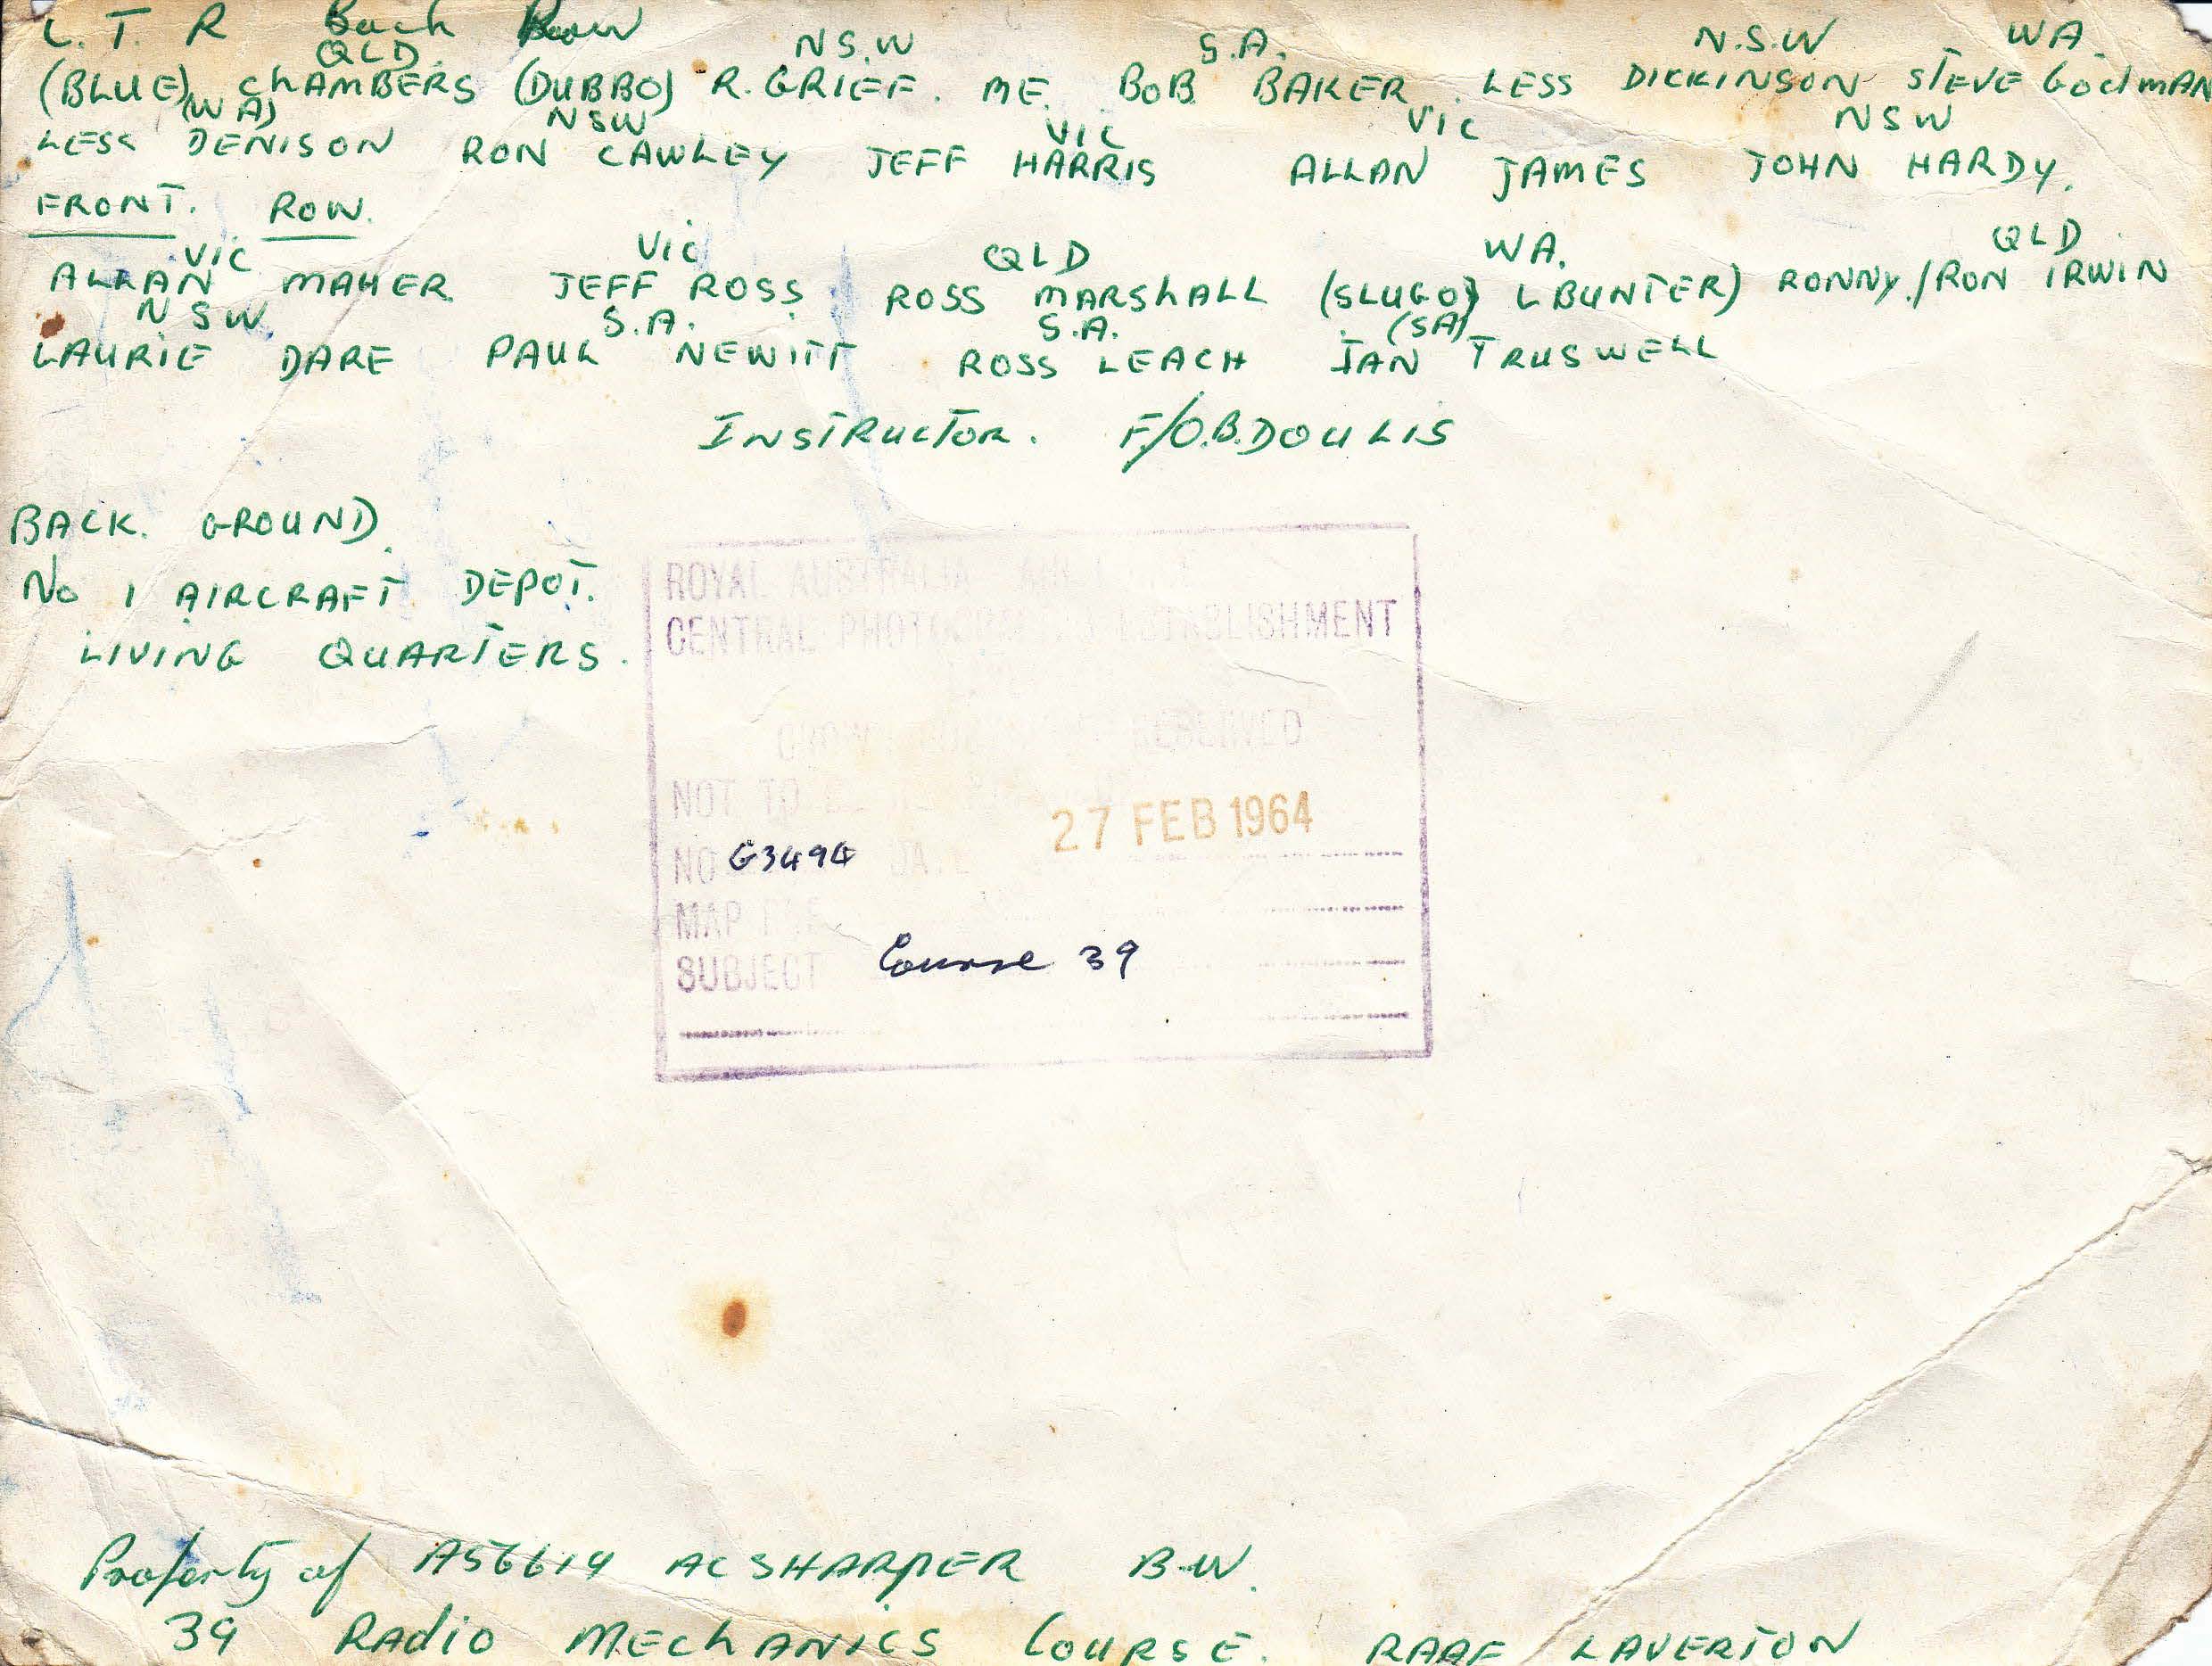 L. T. R Back Row
QLD N.S.W S.A. N.S.W WA.
(BLUE) ChAMBERS (DUBBO) R. GRIEF. ME. BOB BAKER. LESS DICKINSON STEVE GodmAN
(WA) NSW VIC VIC NSW
LESS DENISON RON CAWLEY JEFF HARRIS ALLAN JAMES JOHN HARDY.
FRONT. ROW.
VIC VIC QLD WA. QLD
ALLAN MAHER JEFF ROSS ROSS MARShALL (SLUGO) LBUNTER) RONNY./RON IRWIN
NSW S.A. S.A. (SA)
LAURIE DARE PAUL NEWITT ROSS LEACH IAN TRUSWELL
INSTRUCTOR. F/O.B.DOULIS
BACK. GROUND.
No 1 AIRCRAFT DEPOT.
LIVING QUARTERS.
ROYAL AUSTRALIA AIR
CENTRAL ESTABLISHMENT
RESERVED
NOT TO
27 FEB 1964
NO G3494 DATE
MAP
SUBJECT Course 39
Property of A56619 AC SHARPER B.W.
39 RAdio MEChANICS COURSE. RAAF LAVERTON